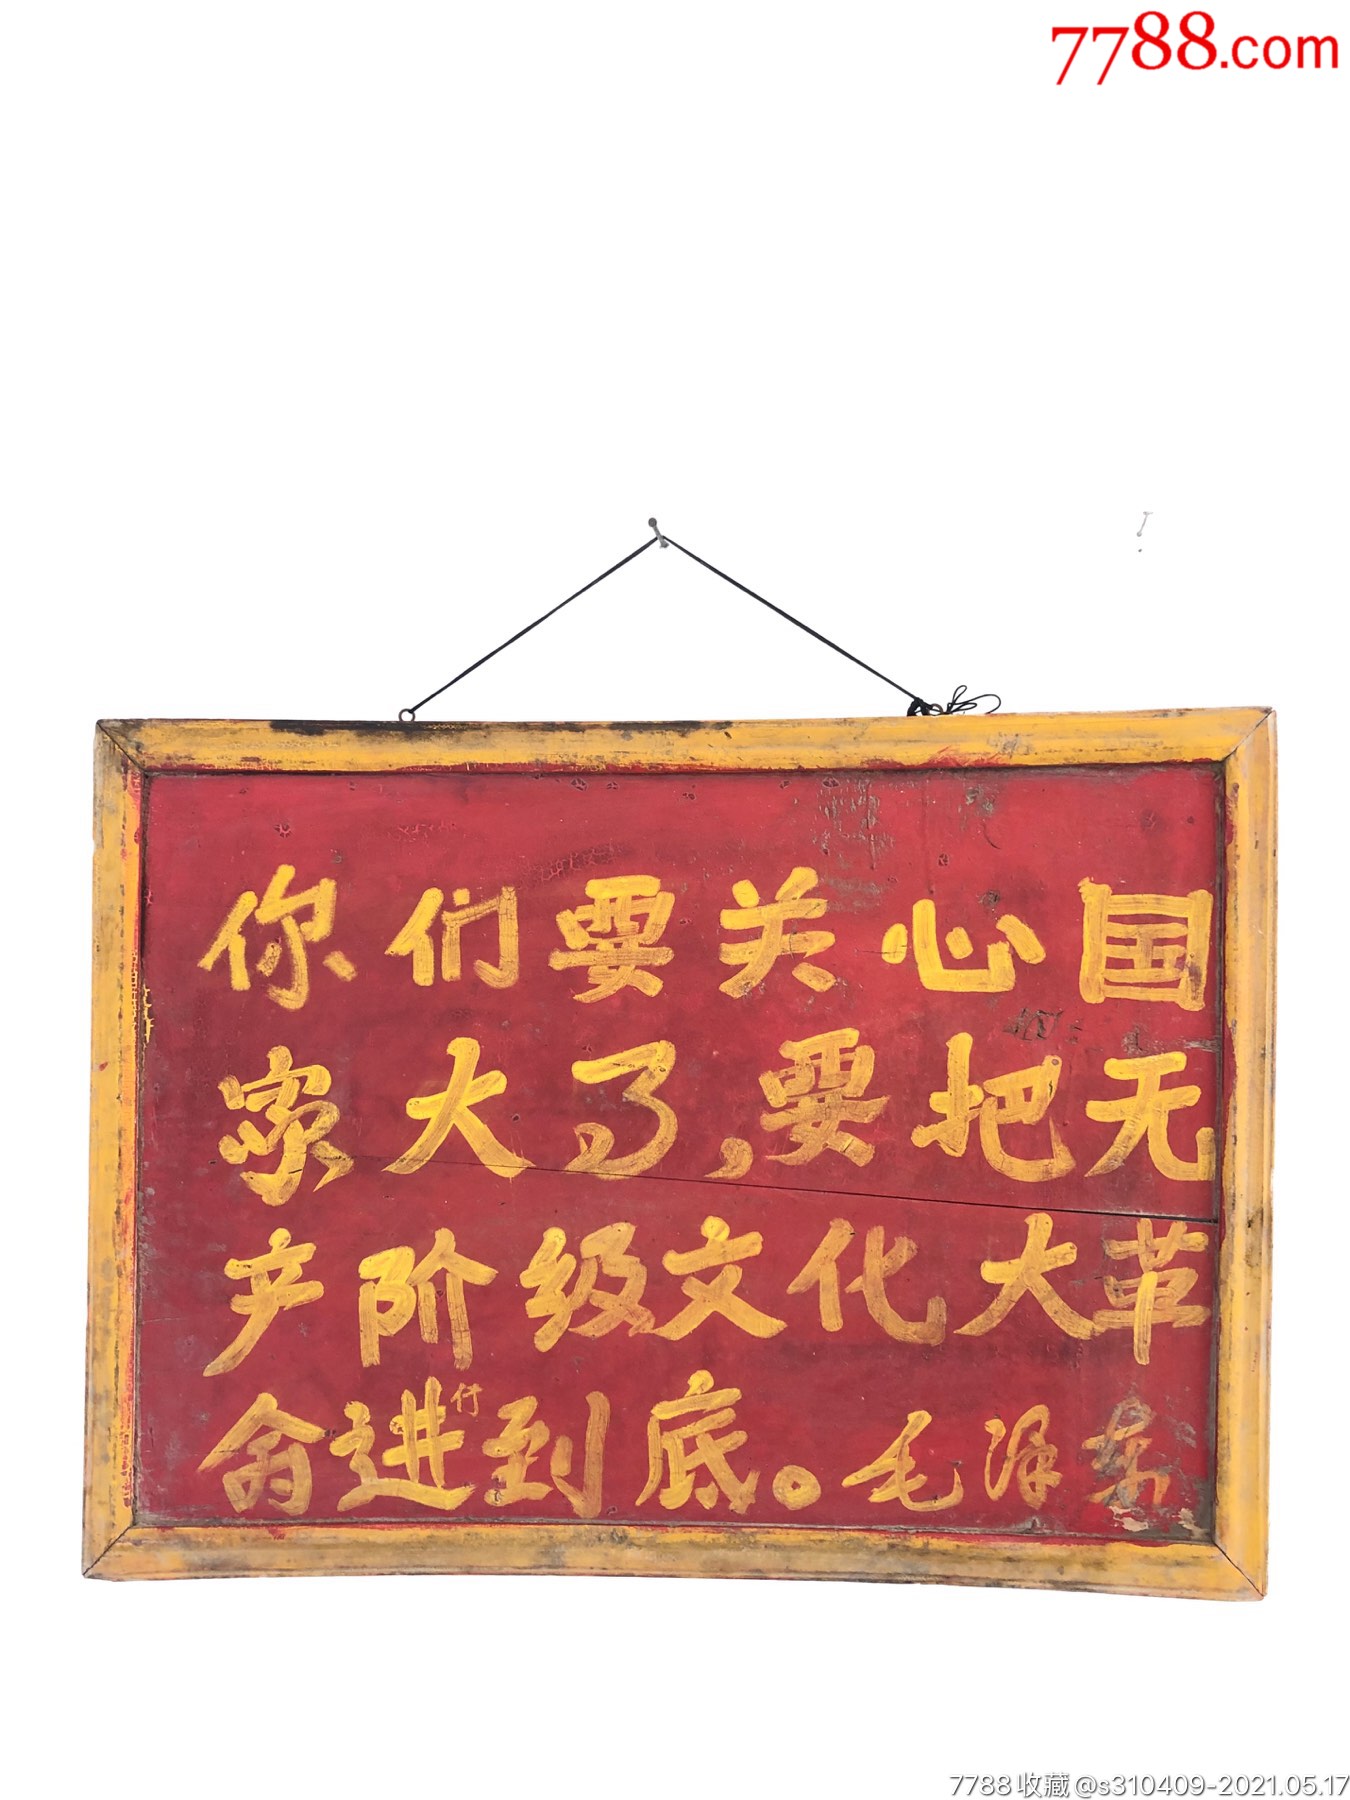 7788.com
你们要关心国
家大事,要把无
产阶级文化大革
命进行到底。毛泽东
7788收藏@s310409-2021.05.17